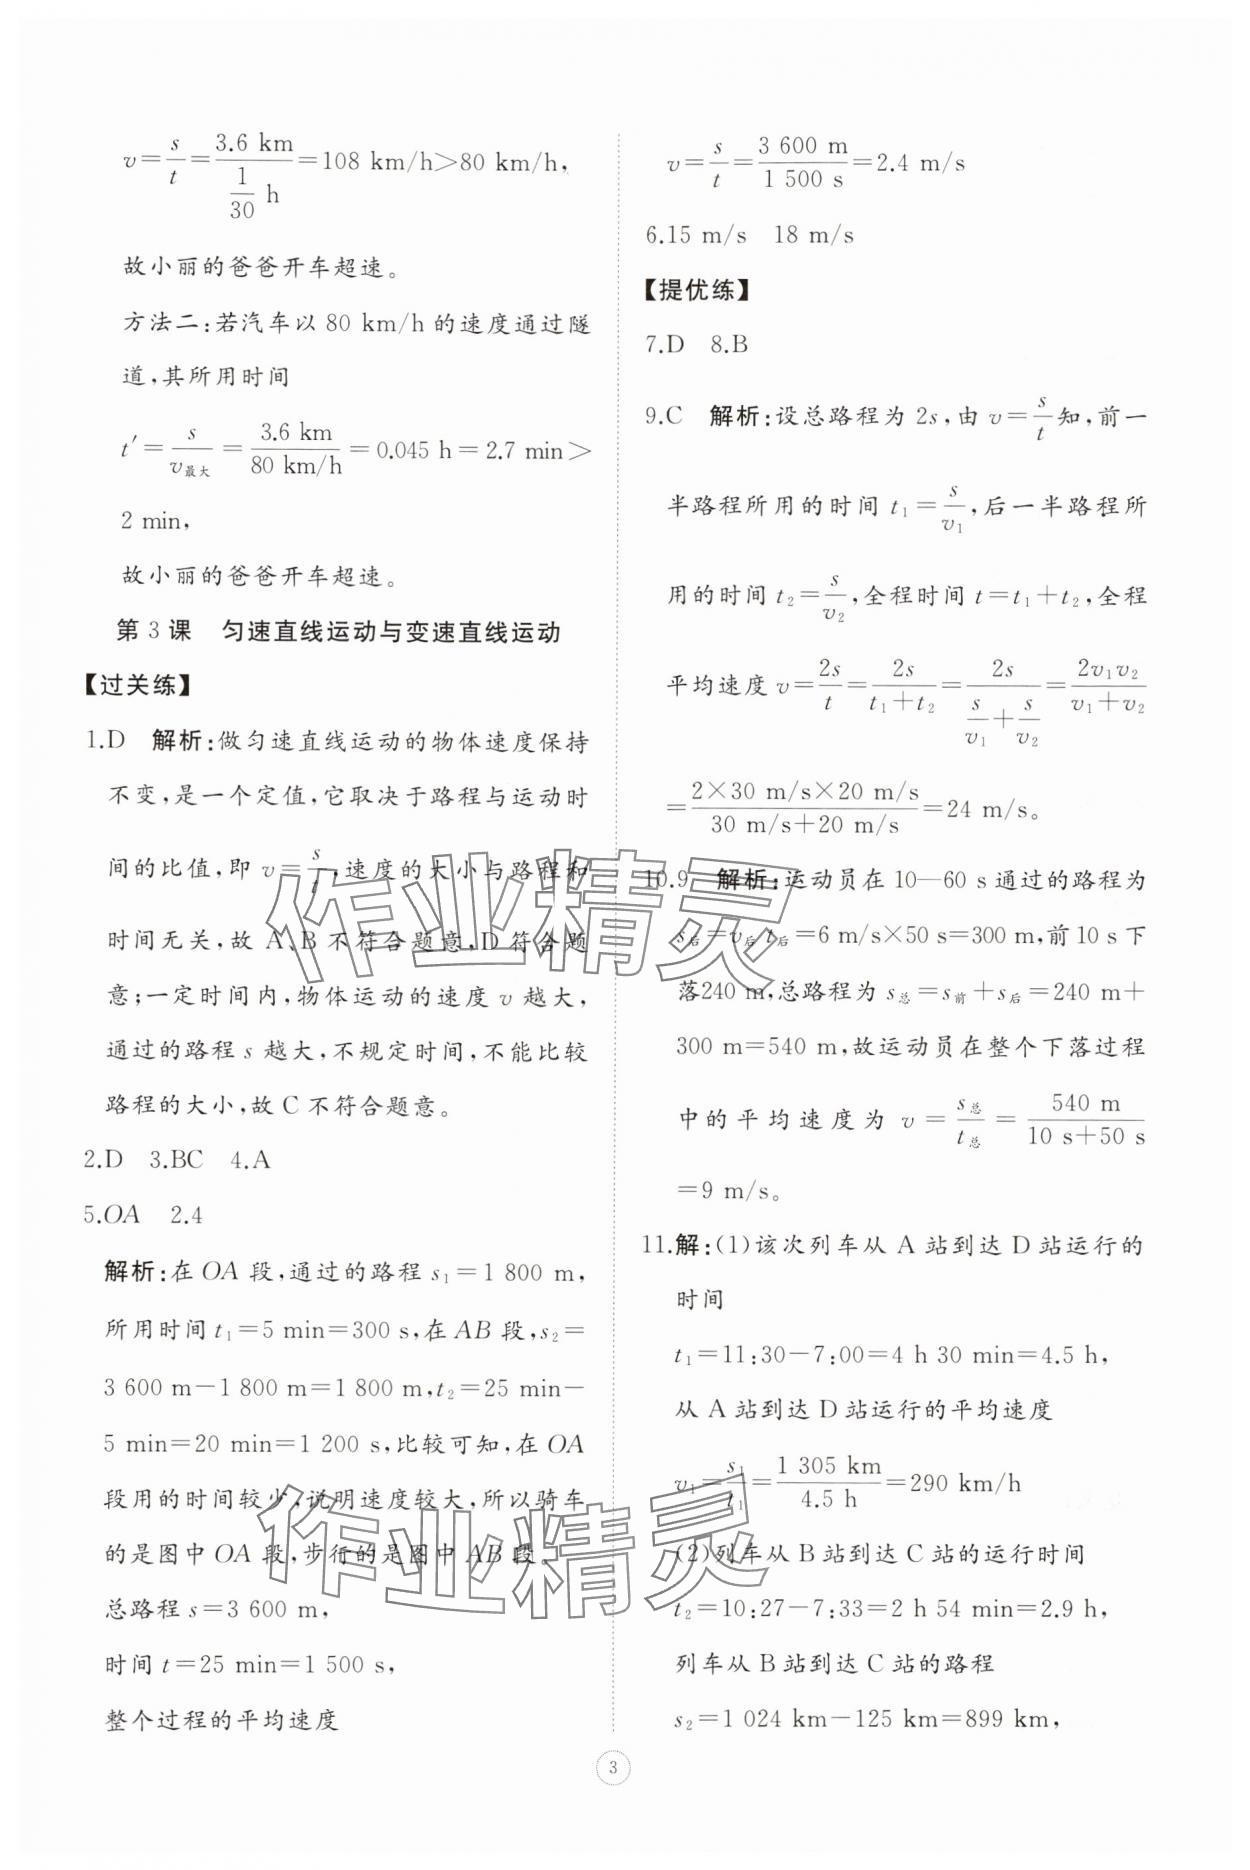 v=s/t=3.6 km/(1/30 h)=108 km/h>80 km/h,
故小丽的爸爸开车超速。
方法二:若汽车以 80 km/h 的速度通过隧
道,其所用时间
t′=s/v最大=3.6 km/80 km/h=0.045 h=2.7 min>
2 min,
故小丽的爸爸开车超速。
第 3 课 匀速直线运动与变速直线运动
【过关练】
1.D 解析:做匀速直线运动的物体速度保持
不变,是一个定值,它取决于路程与运动时
间的比值,即 v=s/t,速度的大小与路程和
时间无关,故 A、B 不符合题意,D 符合题
意;一定时间内,物体运动的速度 v 越大,
通过的路程 s 越大,不规定时间,不能比较
路程的大小,故 C 不符合题意。
2.D 3.BC 4.A
5.OA 2.4
解析:在 OA 段,通过的路程 s₁=1 800 m,
所用时间 t₁=5 min=300 s,在 AB 段,s₂=
3 600 m-1 800 m=1 800 m,t₂=25 min-
5 min=20 min=1 200 s,比较可知,在 OA
段用的时间较少,说明速度较大,所以骑车
的是图中 OA 段,步行的是图中 AB 段。
总路程 s=3 600 m,
时间 t=25 min=1 500 s,
整个过程的平均速度
v=s/t=3 600 m/1 500 s=2.4 m/s
6.15 m/s 18 m/s
【提优练】
7.D 8.B
9.C 解析:设总路程为 2s,由 v=s/t知,前一
半路程所用的时间 t₁=s/v₁,后一半路程所
用的时间 t₂=s/v₂,全程时间 t=t₁+t₂,全程
平均速度 v=2s/t=2s/(t₁+t₂)=2s/(s/v₁+s/v₂)=2v₁v₂/(v₁+v₂)
=(2×30 m/s×20 m/s)/(30 m/s+20 m/s)=24 m/s。
10.9 解析:运动员在 10—60 s 通过的路程为
s后=v后 t后=6 m/s×50 s=300 m,前 10 s 下
落240 m,总路程为 s总=s前+s后=240 m+
300 m=540 m,故运动员在整个下落过程
中的平均速度为 v=s总/t总=540 m/(10 s+50 s)
=9 m/s。
11.解:(1)该次列车从 A 站到达 D 站运行的
时间
t₁=11:30-7:00=4 h 30 min=4.5 h,
从 A 站到达 D 站运行的平均速度
v₁=s₁/t₁=1 305 km/4.5 h=290 km/h
(2)列车从 B 站到达 C 站的运行时间
t₂=10:27-7:33=2 h 54 min=2.9 h,
列车从 B 站到达 C 站的路程
s₂=1 024 km-125 km=899 km,
3
作业精灵
作业精灵